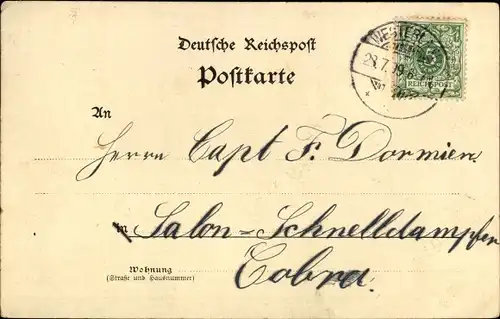 Deutsche Reichspost
Postkarte
WESTERL
REICHSPOST
An
Herrn Capt. F. Dormien.
in Salon-Schnelldampfer
Wohnung
(Straße und Hausnummer)
Cobra.